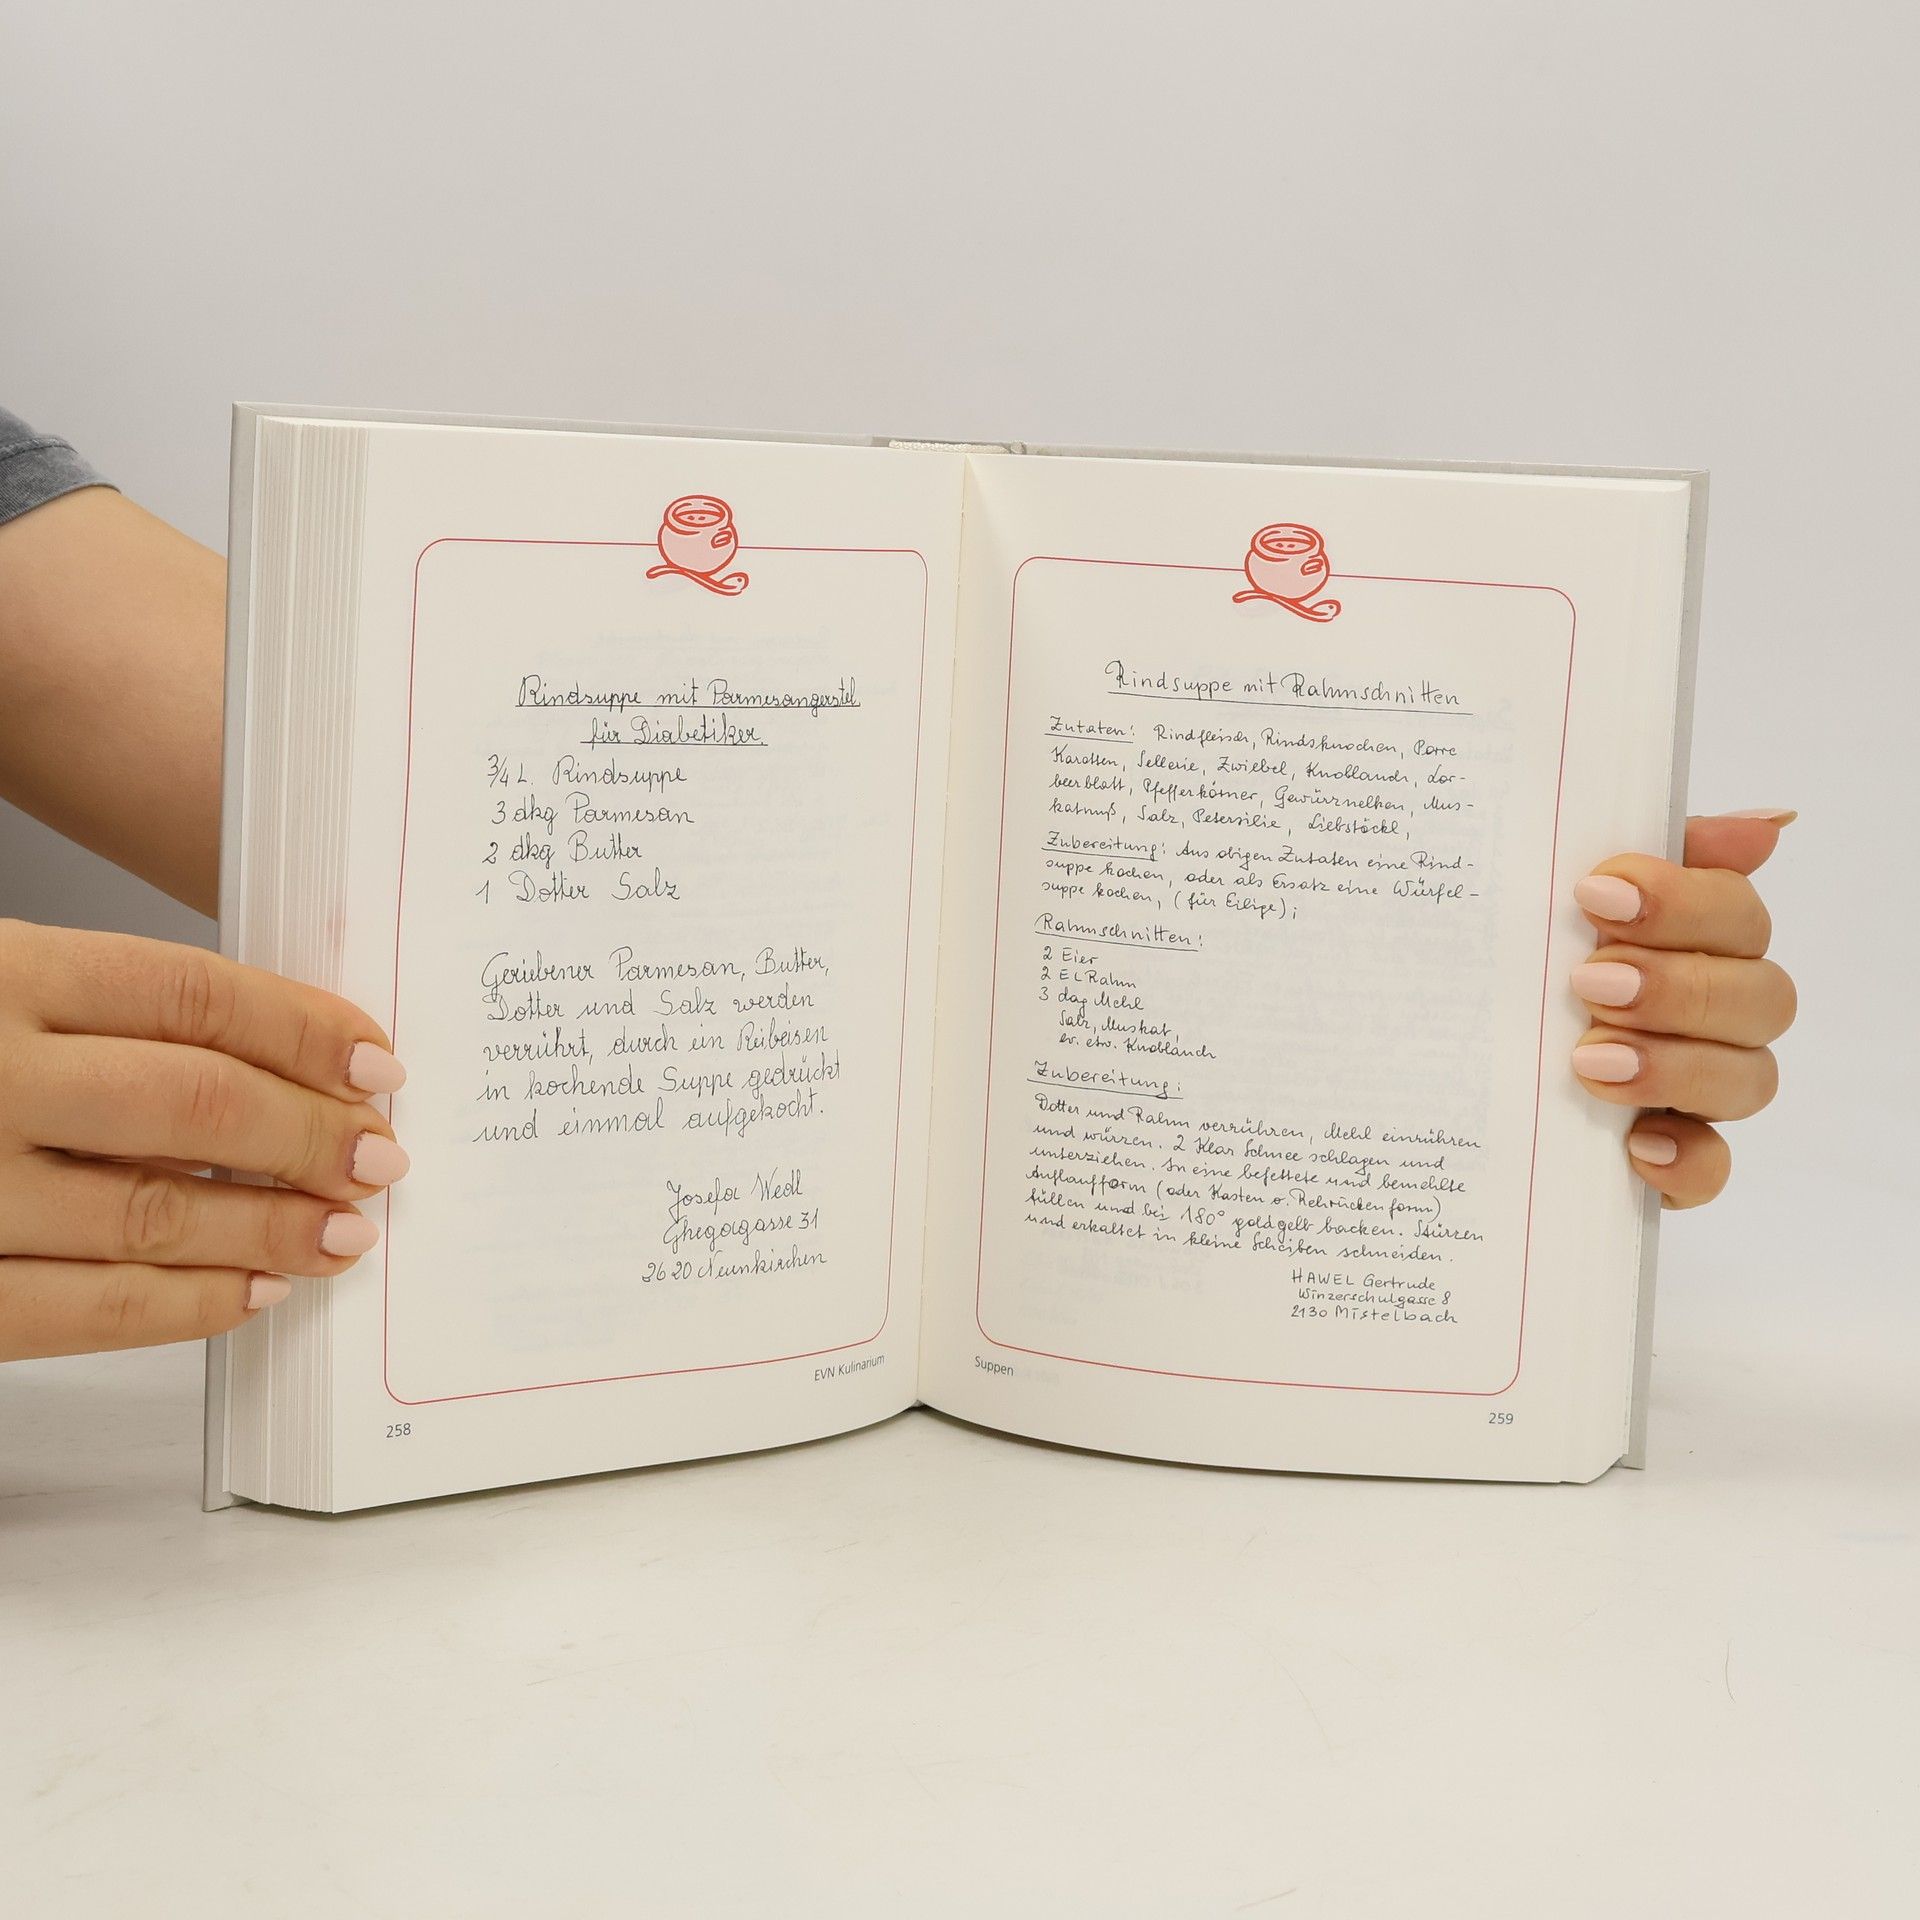 Rindsuppe mit Parmesangerstel
für Diabetiker.
3/4 L. Rindsuppe
3 dkg Parmesan
2 dkg Butter
1 Dotter Salz
Geriebener Parmesan, Butter,
Dotter und Salz werden
verrührt, durch ein Reibeisen
in kochende Suppe gedrückt
und einmal aufgekocht.
Josefa Wedl
Ghegagasse 31
2620 Neunkirchen
EVN Kulinarium
258
Rindsuppe mit Rahmschnitten
Zutaten: Rindfleisch, Rindsknochen, Porre
Karotten, Sellerie, Zwiebel, Knoblauch, Lor-
beerblatt, Pfefferkörner, Gewürznelken, Mus-
katnuß, Salz, Petersilie, Liebstöckl,
Zubereitung: Aus obigen Zutaten eine Rind-
suppe kochen, oder als Ersatz eine Würfel-
suppe kochen, (für Eilige);
Rahmschnitten:
2 Eier
2 EL Rahm
3 dag Mehl
Salz, Muskat,
ev. etw. Knoblauch
Zubereitung:
Dotter und Rahm verrühren, Mehl einrühren
und würzen. 2 Klar Schnee schlagen und
unterziehen. In eine befettete und bemehlte
Auflaufform (oder Kasten o. Rehrückenform)
füllen und bei 180° goldgelb backen. Stürzen
und erkaltet in kleine Scheiben schneiden.
HAWEL Gertrude
Winzerschulgasse 8
2130 Mistelbach
Suppen
259